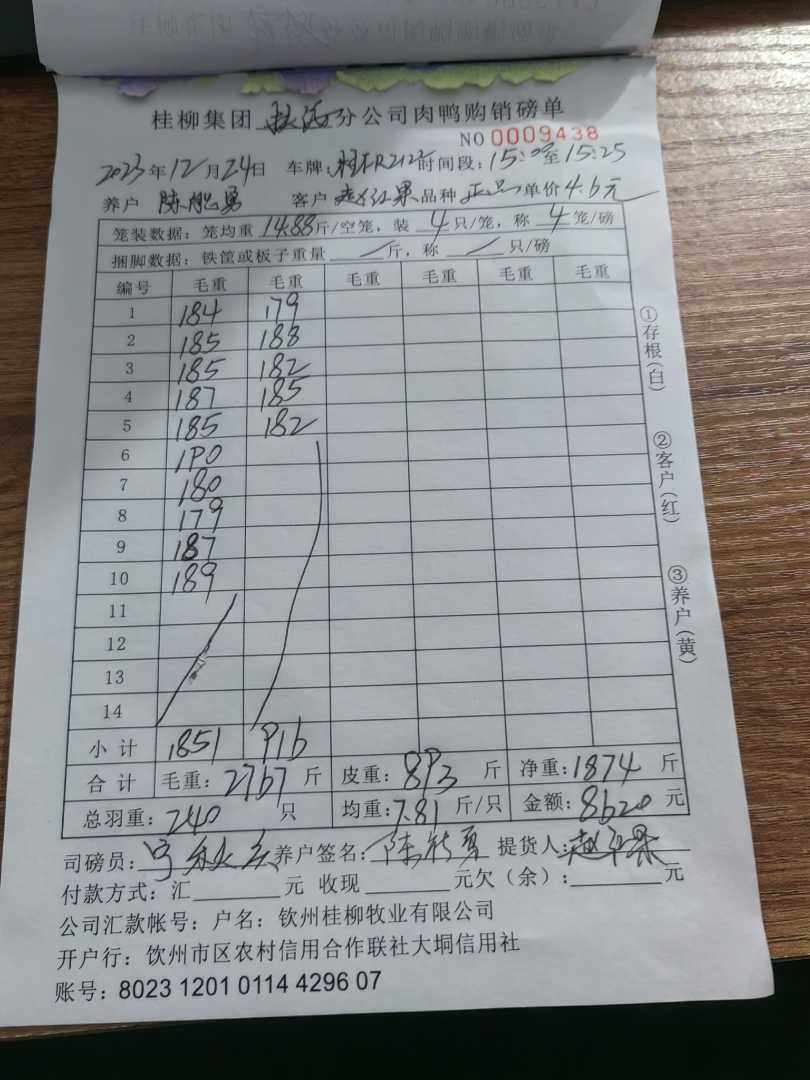 桂柳集团 分公司肉鸭购销磅单
NO 0009438
2023年12月24日 车牌: 时间段:15:09至15:25
养户 陈 勇 客户 赵红果 品种 正品 单价 4.6元
笼装数据:笼均重 14.88斤/空笼,装 4只/笼,称 4笼/磅
捆脚数据:铁筐或板子重量 / 斤,称 / 只/磅
编号 毛重 毛重 毛重 毛重 毛重 毛重
1 184 179
2 185 188
3 185 182
4 187 185
5 185 182
6 190
7 180
8 179
9 187
10 189
11
12
13
14
小计 1851 916
合计 毛重:2767斤 皮重:893斤 净重:1874斤
总羽重:240只 均重:7.81斤/只 金额:8620元
司磅员: 养户签名:陈 勇 提货人:赵红果
付款方式:汇 元 收现 元欠(余): 元
公司汇款帐号:户名:钦州桂柳牧业有限公司
开户行:饮州市区农村信用合作联社大垌信用社
账号:8023 1201 0114 4296 07
①存根(白)
②客户(红)
③养户(黄)